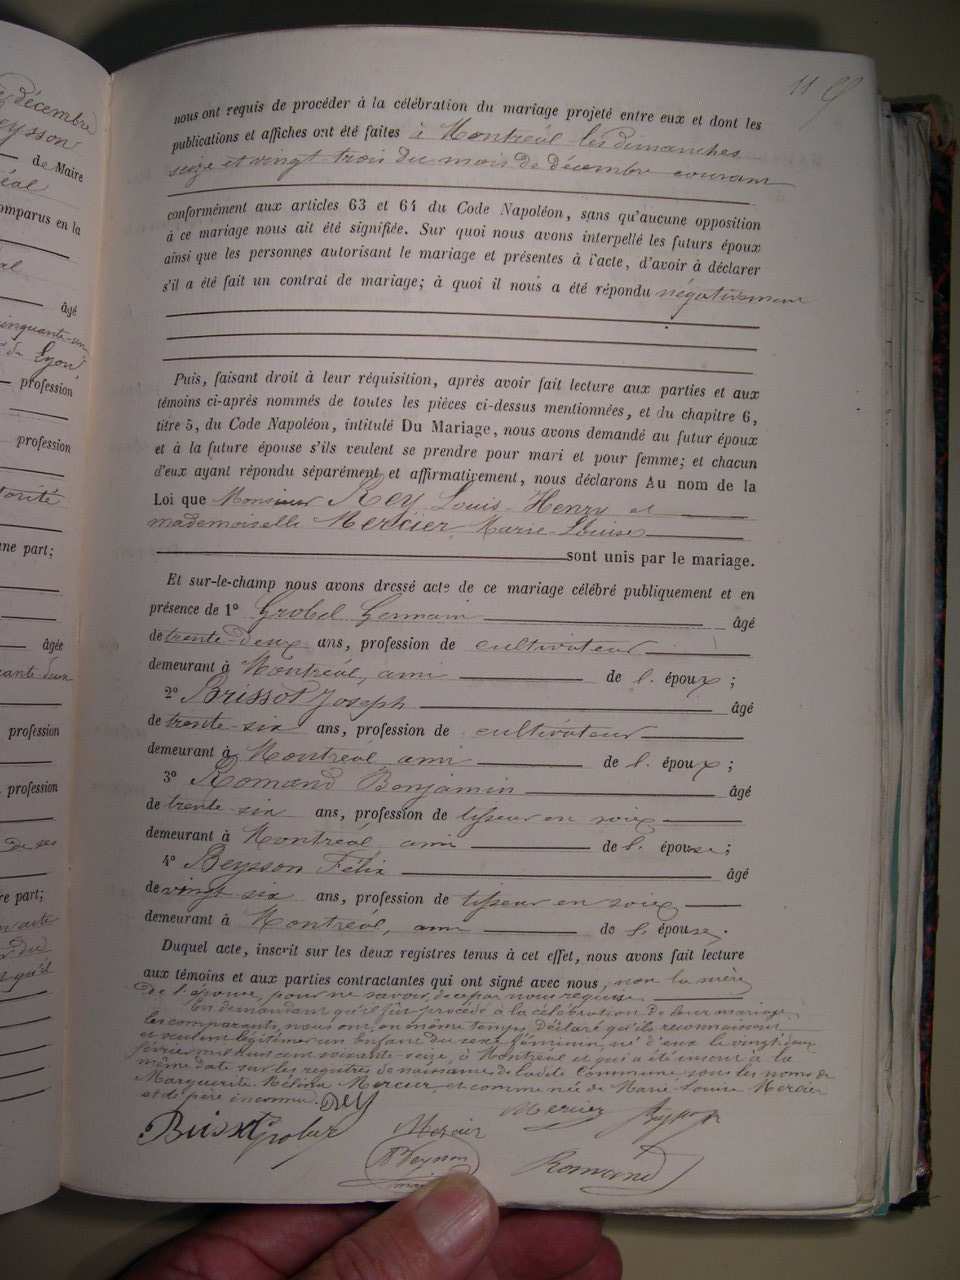 décembre
eysson
de Maire
éal
comparus en la
al
âgé
cinquante-un
de Lyon,
profession
profession
torité
une part;
âgée
profession
profession
de ses
re part;
acte
qu'il
11
nous ont requis de procéder à la célébration du mariage projeté entre eux et dont les
publications et affiches ont été faites à Montréal les dimanches
seize et vingt trois du mois de décembre courant
conformément aux articles 63 et 64 du Code Napoléon, sans qu'aucune opposition
à ce mariage nous ait été signifiée. Sur quoi nous avons interpellé les futurs époux
ainsi que les personnes autorisant le mariage et présentes à l'acte, d'avoir à déclarer
s'il a été fait un contrat de mariage; à quoi il nous a été répondu négativement
Puis, faisant droit à leur réquisition, après avoir fait lecture aux parties et aux
témoins ci-après nommés de toutes les pièces ci-dessus mentionnées, et du chapitre 6,
titre 5, du Code Napoléon, intitulé Du Mariage, nous avons demandé au futur époux
et à la future épouse s'ils veulent se prendre pour mari et pour femme; et chacun
d'eux ayant répondu séparément et affirmativement, nous déclarons Au nom de la
Loi que Monsieur Rey Louis Henry et
mademoiselle Mercier Marie Louise
sont unis par le mariage.
Et sur-le-champ nous avons dressé acte de ce mariage célébré publiquement et en
présence de 1° Grobel Germain âgé
de trente-deux ans, profession de cultivateur
demeurant à Montréal, ami de l. époux;
2° Brissot Joseph âgé
de trente-six ans, profession de cultivateur
demeurant à Montréal ami de l. époux;
3° Romand Benjamin âgé
de trente-six ans, profession de tisseur en soie
demeurant à Montréal, ami de l. épouse;
4° Beysson Félix âgé
de vingt six ans, profession de tisseur en soie
demeurant à Montréal, ami de l. épouse.
Duquel acte, inscrit sur les deux registres tenus à cet effet, nous avons fait lecture
aux témoins et aux parties contractantes qui ont signé avec nous, non la mère
de l'épouse, pour ne savoir, de ce par nous requise.
En demandant qu'il fût procédé à la célébration de leur mariage,
les comparants nous ont en même temps déclaré qu'ils reconnaissent
et veulent légitimer un enfant du sexe féminin, né d'eux le vingt deux
février mil huit cent soixante-seize, à Montréal et qui a été inscrit à la
même date sur les registres de naissance de ladite Commune sous les noms de
Marguerite Mélina Mercier et comme née de Marie Louise Mercier
et de père inconnu. Rey
Brissot Grobel Mercier Mercier
Beysson Romand
maire